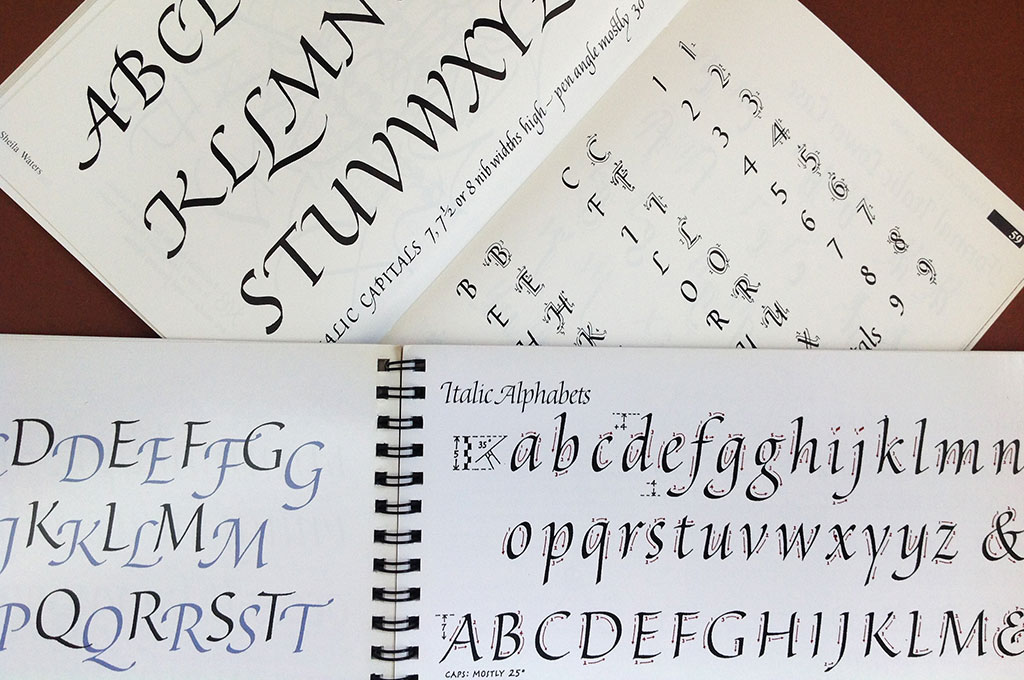 ABCD
KLLMN
STUVWXYZ
ALIC CAPITALS 7, 7½ or 8 nib widths high – pen angle mostly 30
Sheila Waters
1 1
2 2
3 3
4 4
5 5
6 6
7 7
8 8
9 9
C C
F F
I I
L L
O O
R R
U U
B B
E E
H H
K
als
59
DDEEFFGG
JKKLLMM
PQQRRSSTT
Italic Alphabets
5 35°
abcdefgghijklmn
4
opqrstuvwxyyz &
7
ABCDEFGHIJKLM
CAPS: MOSTLY 25°